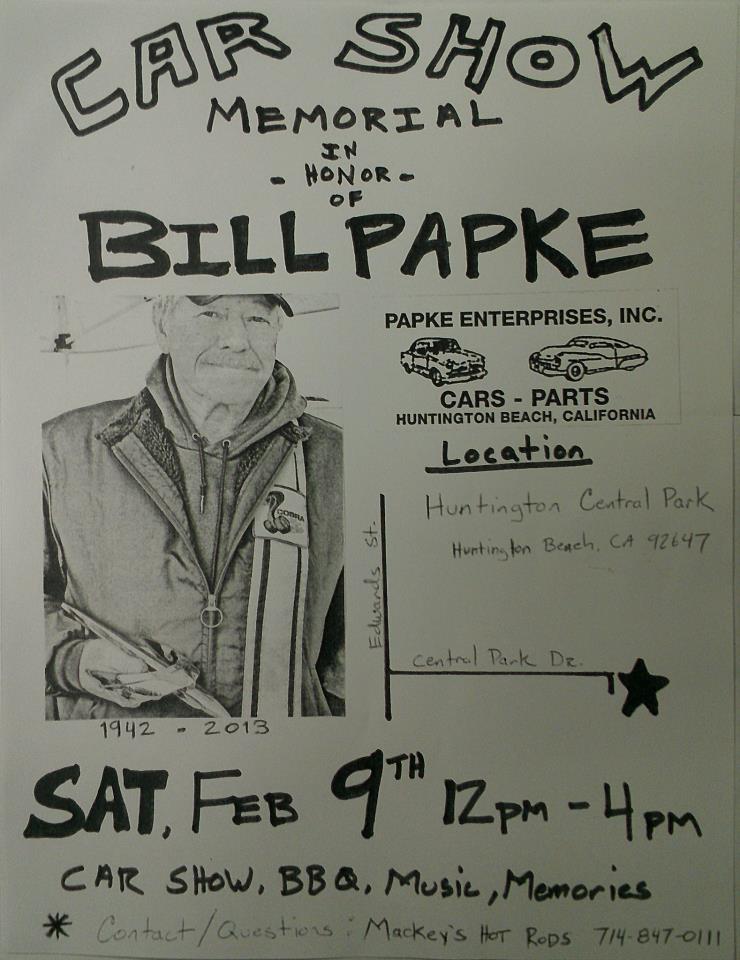 CAR SHOW
MEMORIAL
IN
- HONOR -
OF
BILL PAPKE
PAPKE ENTERPRISES, INC.
CARS - PARTS
HUNTINGTON BEACH, CALIFORNIA
Location
Huntington Central Park
Huntington Beach, CA 92647
Edwards St.
Central Park Dr.
COBRA
1942 - 2013
SAT, FEB 9TH 12pm - 4pm
CAR SHOW, BBQ, Music, Memories
* Contact/Questions: Mackey's Hot Rods 714-847-0111